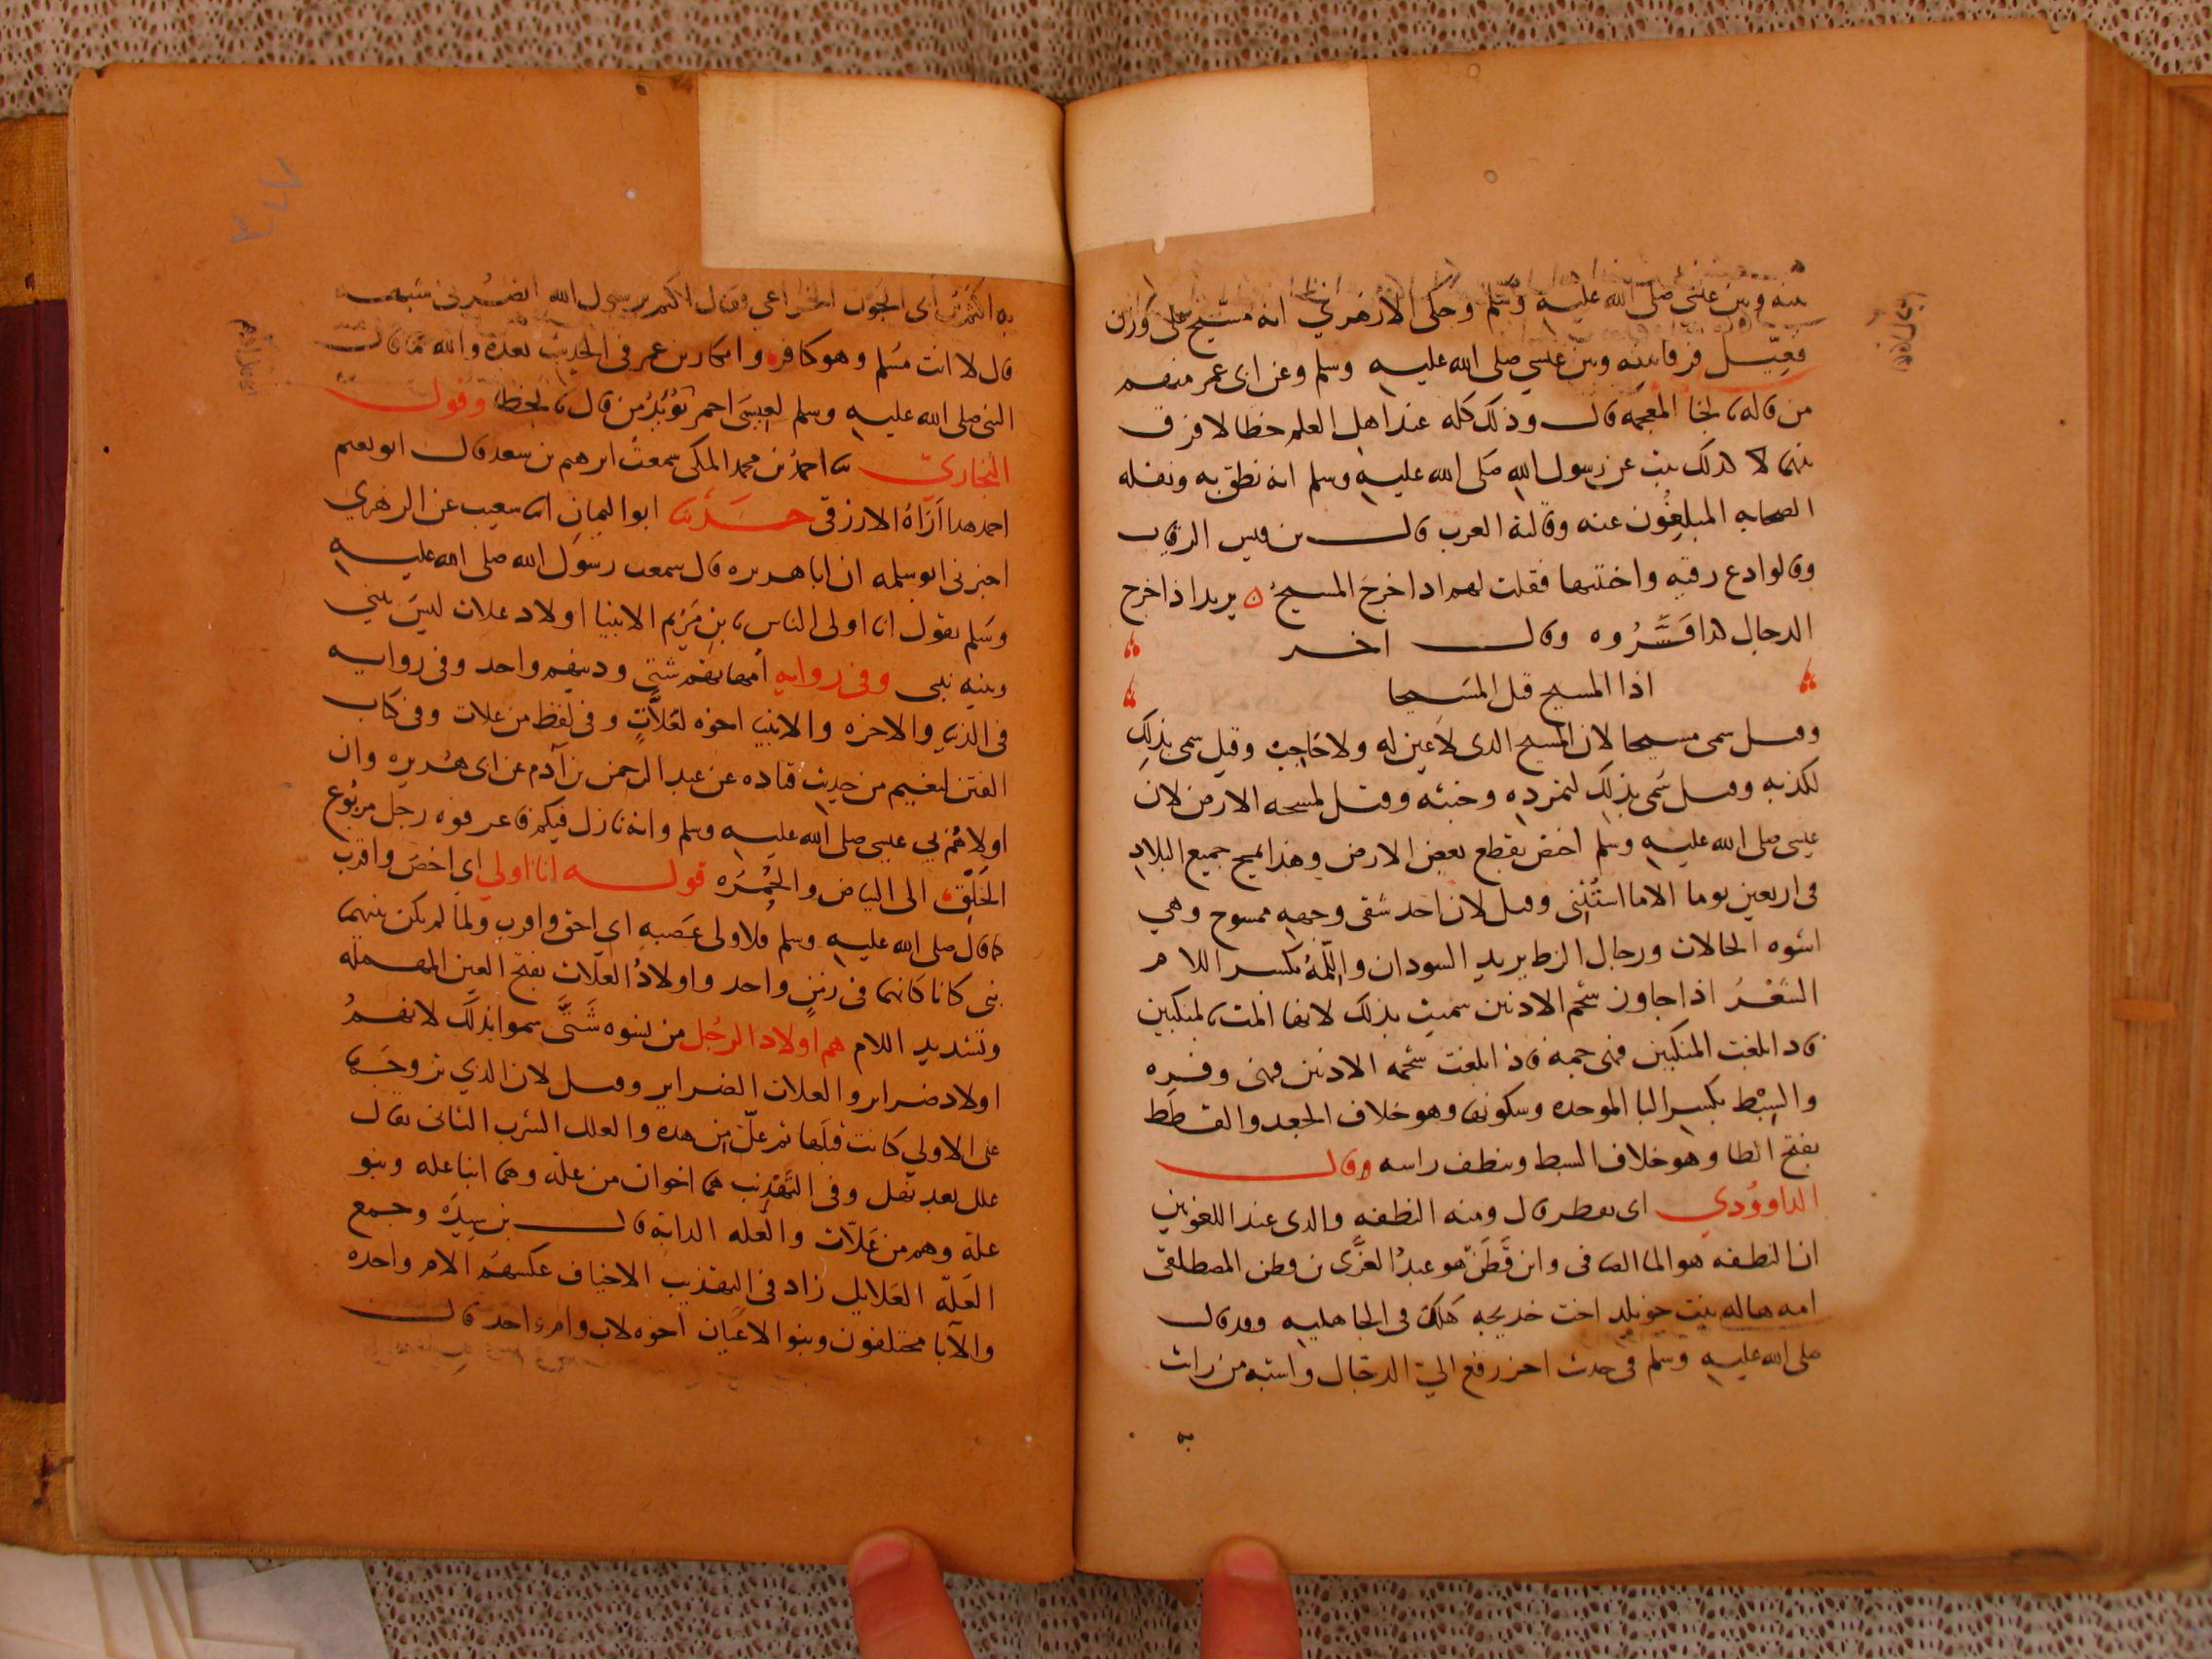 بينه وبين عيسى صلى الله عليه وسلم وحكى الازهري انه مسيح على وزن
فعيل فرقا بينه وبين عيسى صلى الله عليه وسلم وعن ابى عمر منهم
من قاله بالخا المعجمه قال وذلك كله عند اهل العلم خطا لا فرق
بينهما لا كذلك ثبت عن رسول الله صلى الله عليه وسلم انه نطق به ونقله
الصحابه المبلغون عنه وقالته العرب قال بن قيس الرقيات
وقالوا دع رقيه واجتنبها فقلت لهم اذا خرج المسيح يريد اذا خرج
الدجال كذا فسروه وقال اخر
اذا المسيح قتل المسيحا
وقيل سمى مسيحا لان المسيح الذى لا عين له ولا حاجب وقيل سمى بذلك
لكذبه وقيل سمى بذلك لتمرده وخبثه وقيل لمسحه الارض لان
عيسى صلى الله عليه وسلم اختص بقطع بعض الارض وهذا يمسح جميع البلاد
فى اربعين يوما الا ما استثنى وقيل لان احد شقى وجهه ممسوح وهي
اشوه الحالات ورجال الزط يريد السودان واللمة بكسر اللام
الشعر اذا جاوز شحم الاذنين سميت بذلك لانها المت بالمنكبين
فاذا بلغت المنكبين فهى جمة فاذا بلغت شحمه الاذنين فهى وفره
والسبط بكسر البا الموحده وسكونها وهو خلاف الجعد والقطط
بفتح الطا وهو خلاف السبط وينطف راسه وقال
الداوودي اى يقطر قال ومنه النطفه والذى عند اللغويين
ان النطفه هو الما الصافى وابن قطن هو عبد العزى بن قطن المصطلقى
امه هاله بنت خويلد اخت خديجه هلك فى الجاهليه وقد قال
صلى الله عليه وسلم فى حديث اخر رفع الي الدجال واشبه من رايت
به اكثم بن ابى الجون الخزاعي فقال اكثم يرسول الله ايضرنى شبهه
قال لا انت مسلم وهو كافر وانكار بن عمر فى الحديث بعده والله ما قال
النبى صلى الله عليه وسلم لعيسى احمر تؤيد من قال بالخطا وقول
البخاري ثنا احمد بن محمد المكى سمعت ابرهيم بن سعد قال ابو نعيم
احمد هذا اراه الازرقى حدثنا ابو اليمان انا شعيب عن الزهري
اخبرنى ابو سلمه ان ابا هريره قال سمعت رسول الله صلى الله عليه
وسلم يقول انا اولى الناس بابن مريم الانبيا اولاد علات ليس بيني
وبينه نبي وفى روايه امهاتهم شتى ودينهم واحد وفى روايه
فى الدنيا والاخره والانبيا اخوه لعلات وفى لفظ من علات وفى كتاب
الفتن لنعيم من حديث قتاده عن عبد الرحمن بن آدم عن ابى هريره وان
اولاهم بي عيسى صلى الله عليه وسلم وانه نازل فيكم فاعرفوه رجل مربوع
الخلق الى البياض والحمره قوله انا اولي اي اخص واقرب
كما قال صلى الله عليه وسلم فلاولى عصبه اي احق واقرب ولما لم يكن بينهما
نبى كانا كانهما فى زمن واحد واولاد العلات بفتح العين المهمله
وتشديد اللام هم اولاد الرجل من نسوه شتى سموا بذلك لانهم
اولاد ضراير والعلات الضراير وقيل لان الذي تزوجها
على الاولي كانت قبلها ثم عل من هذه والعلل الشرب الثانى يقال
علل بعد نهل وفى التهذيب هما اخوان من علة وهما ابنا عله وبنو
علة وهم من علات والعله الرابة قال بن سيده وجمع
العلة العلايل زاد فى التهذيب الاخياف عكسهم الام واحده
والآبا مختلفون وبنو الاعيان اخوه لاب وام واحد قال